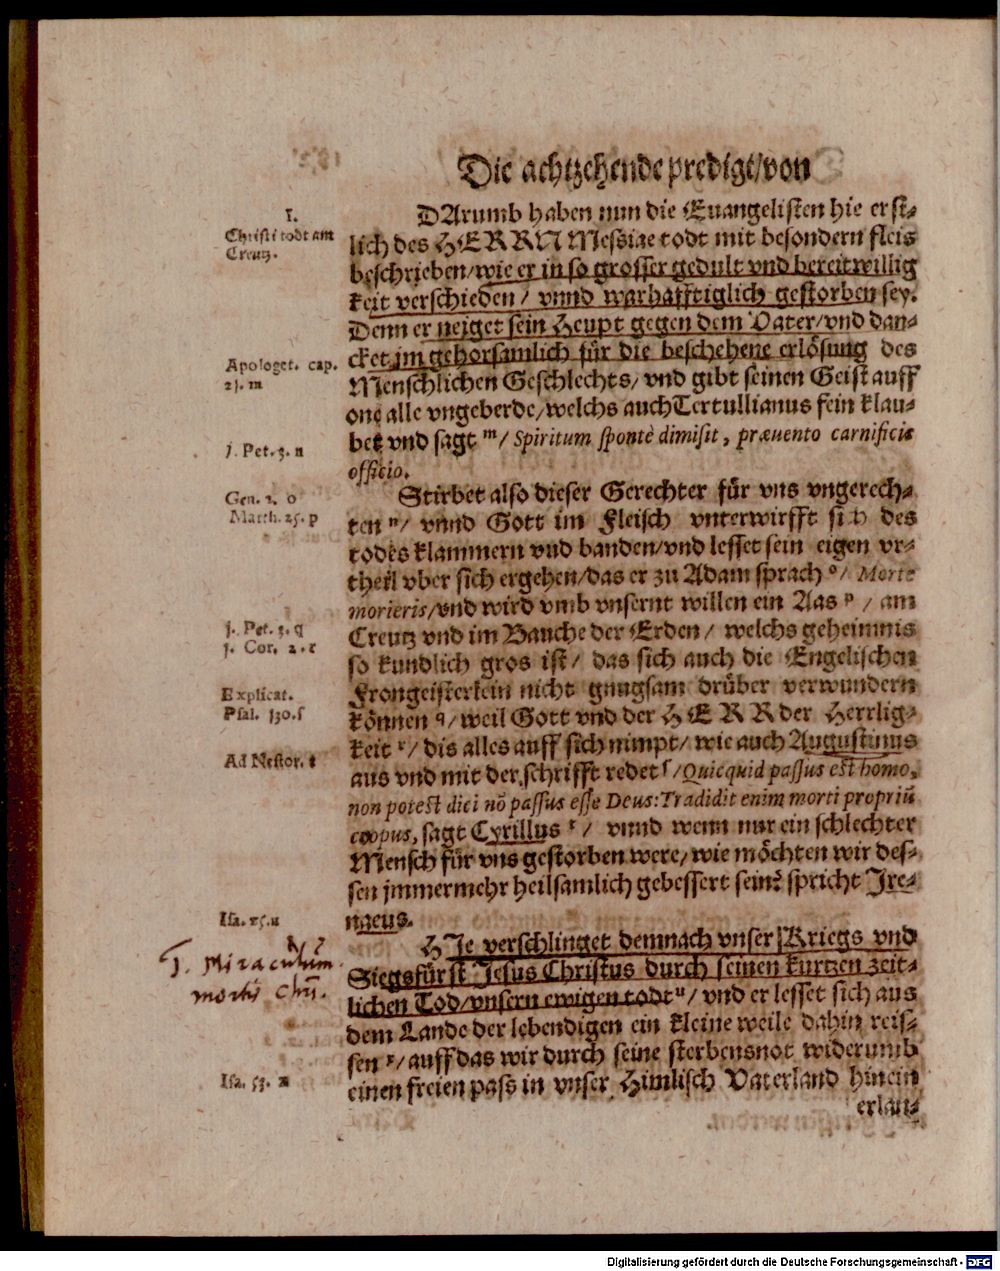 Die achtzehende predigt/von
I.
Christi todt am
Creutz.
DArumb haben nun die Euangelisten hie erst-
lich des HERRN Messiae todt mit besondern fleis
beschrieben/wie er in so grosser gedult vnd bereitwillig
keit verschieden/ vnnd warhafftiglich gestorben sey.
Denn er neiget sein Heupt gegen dem Vater/vnd dan-
cket jm gehorsamlich für die beschehene erlösung des
Apologet. cap.
21. m
Menschlichen Geschlechts/ vnd gibt seinen Geist auff
one alle vngeberde/welchs auch Tertullianus fein klau-
bet vnd sagt ᵐ/ Spiritum spontè dimisit, præuento carnificis
officio.
1. Pet. 3. n
Gen. 2. o
Matth. 25. p
Stirbet also dieser Gerechter für vns vngerech-
ten ⁿ/ vnnd Gott im Fleisch vnterwirfft sich des
todes klammern vnd banden/vnd lesset sein eigen vr-
theil vber sich ergehen/das er zu Adam sprach ᵒ/ Morte
morieris/vnd wird vmb vnsernt willen ein Aas ᵖ / am
Creutz vnd im Bauche der Erden/ welchs geheimnis
1. Pet. 3. q
1. Cor. 2. r
so kundlich gros ist/ das sich auch die Engelischen
Frongeisterlein nicht gnugsam drüber verwundern
können q/ weil Gott vnd der HERR der Herrlig-
keit ʳ/ dis alles auff sich nimpt/ wie auch Augustinus
Explicat.
Psal. 130. s
Ad Nestor. t
aus vnd mit der schrifft redet ˢ/Quicquid passus est homo,
non potest dici nõ passus esse Deus: Tradidit enim morti propriũ
corpus, sagt Cyrillus ᵗ/ vnnd wenn nur ein schlechter
Mensch für vns gestorben were/wie möchten wir des-
sen jmmermehr heilsamlich gebessert sein? spricht Ire-
naeus.
Isa. 25. u
HIe verschlinget demnach vnser Kriegs vnd
Siegsfürst Jesus Christus durch seinen kurtzen zeit-
lichen Tod/vnsern ewigen todt ᵘ/ vnd er lesset sich aus
dem Lande der lebendigen ein kleine weile dahin reis-
sen ˣ/auff das wir durch seine sterbensnot widerumb
einen freien pass in vnser Himlisch Vaterland hinein
erlan-
Miraculum
mortis Chri.
Isa. 53. x
Digitalisierung gefördert durch die Deutsche Forschungsgemeinschaft - DFG